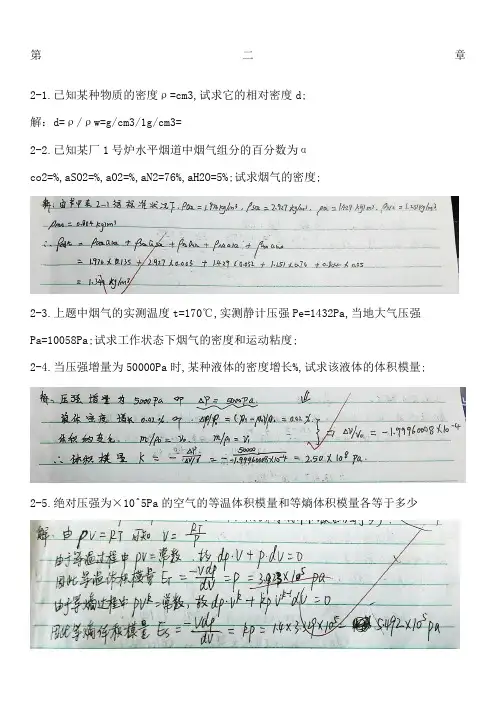 第二章
2-1.已知某种物质的密度ρ=cm3,试求它的相对密度d;
解: d=ρ/ρw=g/cm3/1g/cm3=
2-2.已知某厂1号炉水平烟道中烟气组分的百分数为α
co2=%,aSO2=%,aO2=%,aN2=76%,aH2O=5%;试求烟气的密度;
解:由书中表2-1得标准状况下,ρco2=1.976kg/m³ ρso2=2.927kg/m³, ρo2=1.429kg/m³, ρN2=1.251kg/m³
ρH2O=0.804kg/m³
= 1.976×0.135+2.927×0.003+1.429×0.052+1.251×0.76+0.804×0.05
2-3.上题中烟气的实测温度t=170℃,实测静计压强Pe=1432Pa,当地大气压强
Pa=10058Pa;试求工作状态下烟气的密度和运动粘度;
2-4.当压强增量为50000Pa时,某种液体的密度增长%,试求该液体的体积模量;
解:压强增量为5000Pa 即 ΔP=5000Pa.
液体密度增长0.02% 即
体积的变化 m/ρ0=V0, m/ρ1=V1 ⇒ ΔV/V0=-1.99960008×10^-4
∴体积模量 K=-ΔP/(ΔV/V)=-50000/(-1.99960008×10^-4)=2.50×10^8 pa.
2-5.绝对压强为×10^5Pa的空气的等温体积模量和等熵体积模量各等于多少
解:由PV=RT 可知 V=RT/P
由于等温过程中PV=常数,故dp·V+p·dV=0
因此等温体积模量 ET=-Vdp/dV=P=3.923×10^5 pa
由于等熵过程中PV^k=常数,故dp·V^k+kpV^(k-1)dV=0
因此等熵体积模量 Es=-Vdp/dV=kp=1.4×3.9×10^5= 5.492×10^5 pa